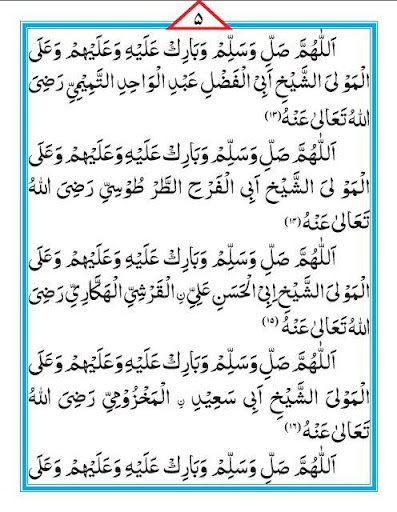 ۵
اَللّٰهُمَّ صَلِّ وَسَلِّمْ وَبَارِكْ عَلَيْهِ وَعَلَيْهِمْ وَعَلَى
الْمَوْلَى الشَّيْخِ اَبِي الْفَضْلِ عَبْدِ الْوَاحِدِ التَّمِيْمِيِّ رَضِىَ
اللهُ تَعَالىٰ عَنْهُ (۱۳)
اَللّٰهُمَّ صَلِّ وَسَلِّمْ وَبَارِكْ عَلَيْهِ وَعَلَيْهِمْ وَعَلَى
الْمَوْ لَى الشَّيْخِ اَبِى الْفَرْحِ الطَّرْ طُوْسِيِّ رَضِىَ اللهُ
تَعَالىٰ عَنْهُ (۱۴)
اَللّٰهُمَّ صَلِّ وَسَلِّمْ وَبَارِكْ عَلَيْهِ وَعَلَيْهِمْ وَعَلَى
الْمَوْلَى الشَّيْخِ اَبِى الْحَسَنِ عَلِيِّ نِ الْقَرْشِيِّ الْهَكَّارِيِّ رَضِىَ
اللهُ تَعَالىٰ عَنْهُ (۱۵)
اَللّٰهُمَّ صَلِّ وَسَلِّمْ وَبَارِكْ عَلَيْهِ وَعَلَيْهِمْ وَعَلَى
الْمَوْلَى الشَّيْخِ اَبِى سَعِيْدِ نِ الْمَخْزُوْمِيِّ رَضِىَ اللهُ
تَعَالىٰ عَنْهُ (۱۶)
اَللّٰهُمَّ صَلِّ وَسَلِّمْ وَبَارِكْ عَلَيْهِ وَعَلَيْهِمْ وَعَلَى